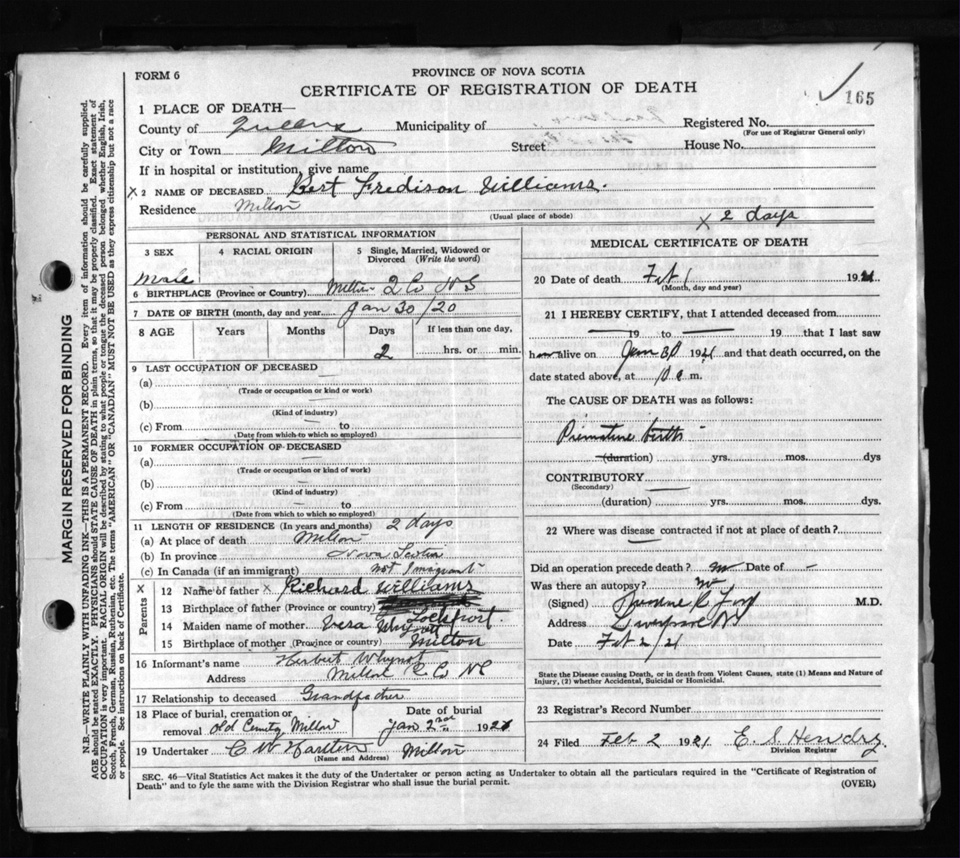 FORM 6
PROVINCE OF NOVA SCOTIA
CERTIFICATE OF REGISTRATION OF DEATH
165
1 PLACE OF DEATH—
County of Queens Municipality of Registered No.
(For use of Registrar General only)
City or Town Milton Street House No.
If in hospital or institution, give name
x 2 NAME OF DECEASED Bert Fredison Williams.
Residence Milton
(Usual place of abode)
x 2 days
PERSONAL AND STATISTICAL INFORMATION
3 SEX 4 RACIAL ORIGIN 5 Single, Married, Widowed or Divorced (Write the word)
Male
6 BIRTHPLACE (Province or Country) Milton Q Co N S
7 DATE OF BIRTH (month, day and year Jan 30/20
8 AGE Years Months Days If less than one day,
2 hrs. or min.
9 LAST OCCUPATION OF DECEASED
(a)
(Trade or occupation or kind or work)
(b)
(Kind of industry)
(c) From
(Date from which to which so employed)
10 FORMER OCCUPATION OF DECEASED
(a)
(Trade or occupation or kind or work)
(b)
(Kind of industry)
(c) From
(Date from which to which so employed)
11 LENGTH OF RESIDENCE (In years and months) 2 days
(a) At place of death Milton
(b) In province Nova Scotia
(c) In Canada (if an immigrant) not Imigrant
x Parents
12 Name of father x Richard Williams
13 Birthplace of father (Province or country) Lockeport.
14 Maiden name of mother. Vera
15 Birthplace of mother (Province or country) Milton
16 Informant's name Herbert Whynot
Address Milton Q Co NS
17 Relationship to deceased Grandfather
18 Place of burial, cremation or removal Old Cemtry, Milton Date of burial Jan 2nd 1921
19 Undertaker C W Milton
(Name and Address)
MEDICAL CERTIFICATE OF DEATH
20 Date of death Feb 1 1921
(Month, day and year)
21 I HEREBY CERTIFY, that I attended deceased from
19 to 19 that I last saw
h alive on Jan 30 1921 and that death occurred, on the
date stated above, at 10 a m.
The CAUSE OF DEATH was as follows:
Premature birth
(duration) yrs. mos. dys
CONTRIBUTORY
(Secondary)
(duration) yrs. mos. dys.
22 Where was disease contracted if not at place of death?
Did an operation precede death? no Date of -
Was there an autopsy? no
(Signed) M.D.
Address
Date Feb 2/21
State the Disease causing Death, or in death from Violent Causes, state (1) Means and Nature of
Injury, (2) whether Accidental, Suicidal or Homicidal.
23 Registrar's Record Number
24 Filed Feb 2 1921 E. S. Hendry
Division Registrar
SEC. 46—Vital Statistics Act makes it the duty of the Undertaker or person acting as Undertaker to obtain all the particulars required in the "Certificate of Registration of
Death" and to fyle the same with the Division Registrar who shall issue the burial permit. (OVER)
MARGIN RESERVED FOR BINDING
N.B.—WRITE PLAINLY WITH UNFADING INK—THIS IS A PERMANENT RECORD. Every item of information should be carefully supplied.
AGE should be stated EXACTLY. PHYSICIANS should STATE CAUSE OF DEATH in plain terms, so that it may be properly classified. Exact statement of
OCCUPATION is very important. RACIAL ORIGIN will be described by stating to what people or tongue the deceased person belonged whether English, Irish,
Scotch, French, German, Russian, Ruthenian, etc. The terms "AMERICAN" OR "CANADIAN" MUST NOT BE USED as they express citizenship but not a race
or people. See instructions on back of Certificate.